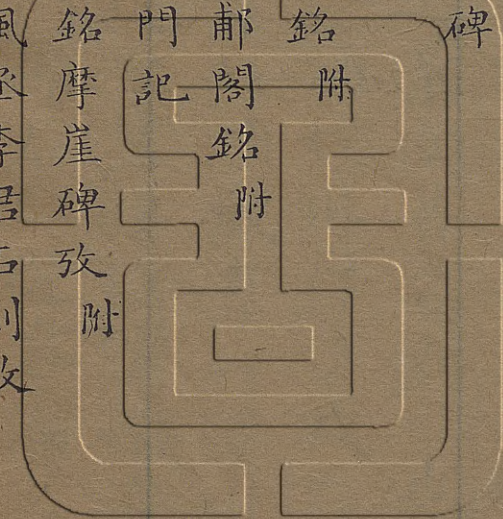 碑
銘 附
郙閣銘 附
門記
銘摩崖碑攷 附
風丞李君石刻攷